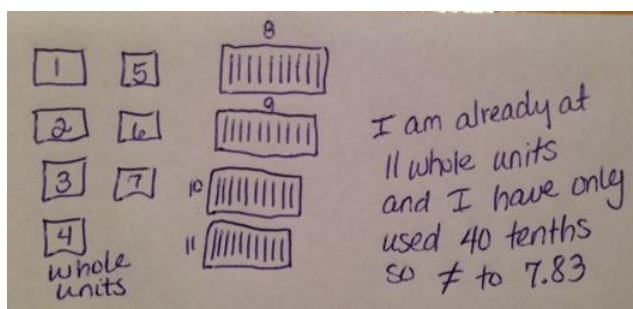 1
2
3
4
whole
units
5
6
7
8
9
10
11
I am already at
11 whole units
and I have only
used 40 tenths
so ≠ to 7.83